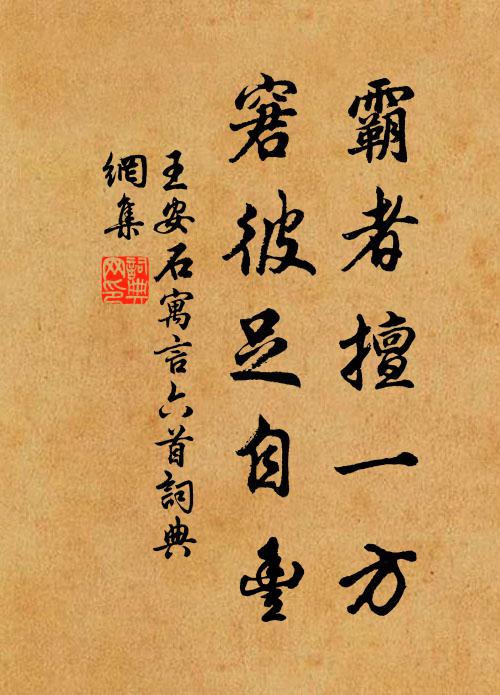 霸者擅一方
窘彼足自豐
王安石寓言六首詞典
網集
詞典
网印